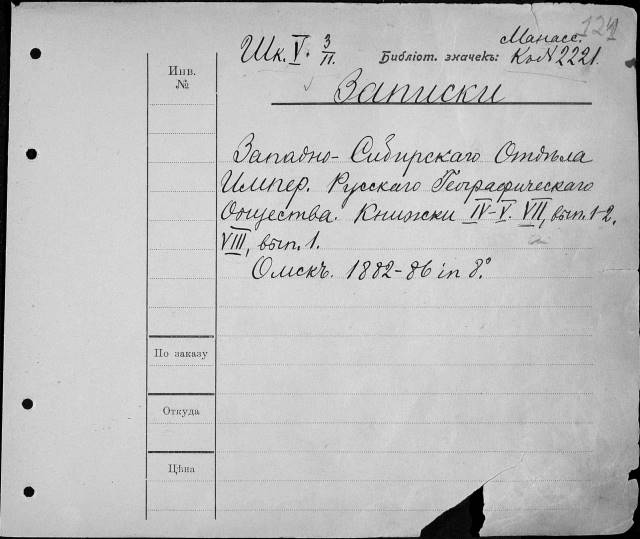 124
Шк. V. 3/П.
Манасс.
Библіот. значекъ: К₀ N 2221.
Инв.
№
Записки
Западно-Сибирскаго Отдѣла
Импер. Русскаго Географическаго
Общества. Книжски IV-V. VII, вып. 1-2.
VIII, вып. 1.
Омскъ. 1882-86 in 8°
По заказу
Откуда
Цѣна